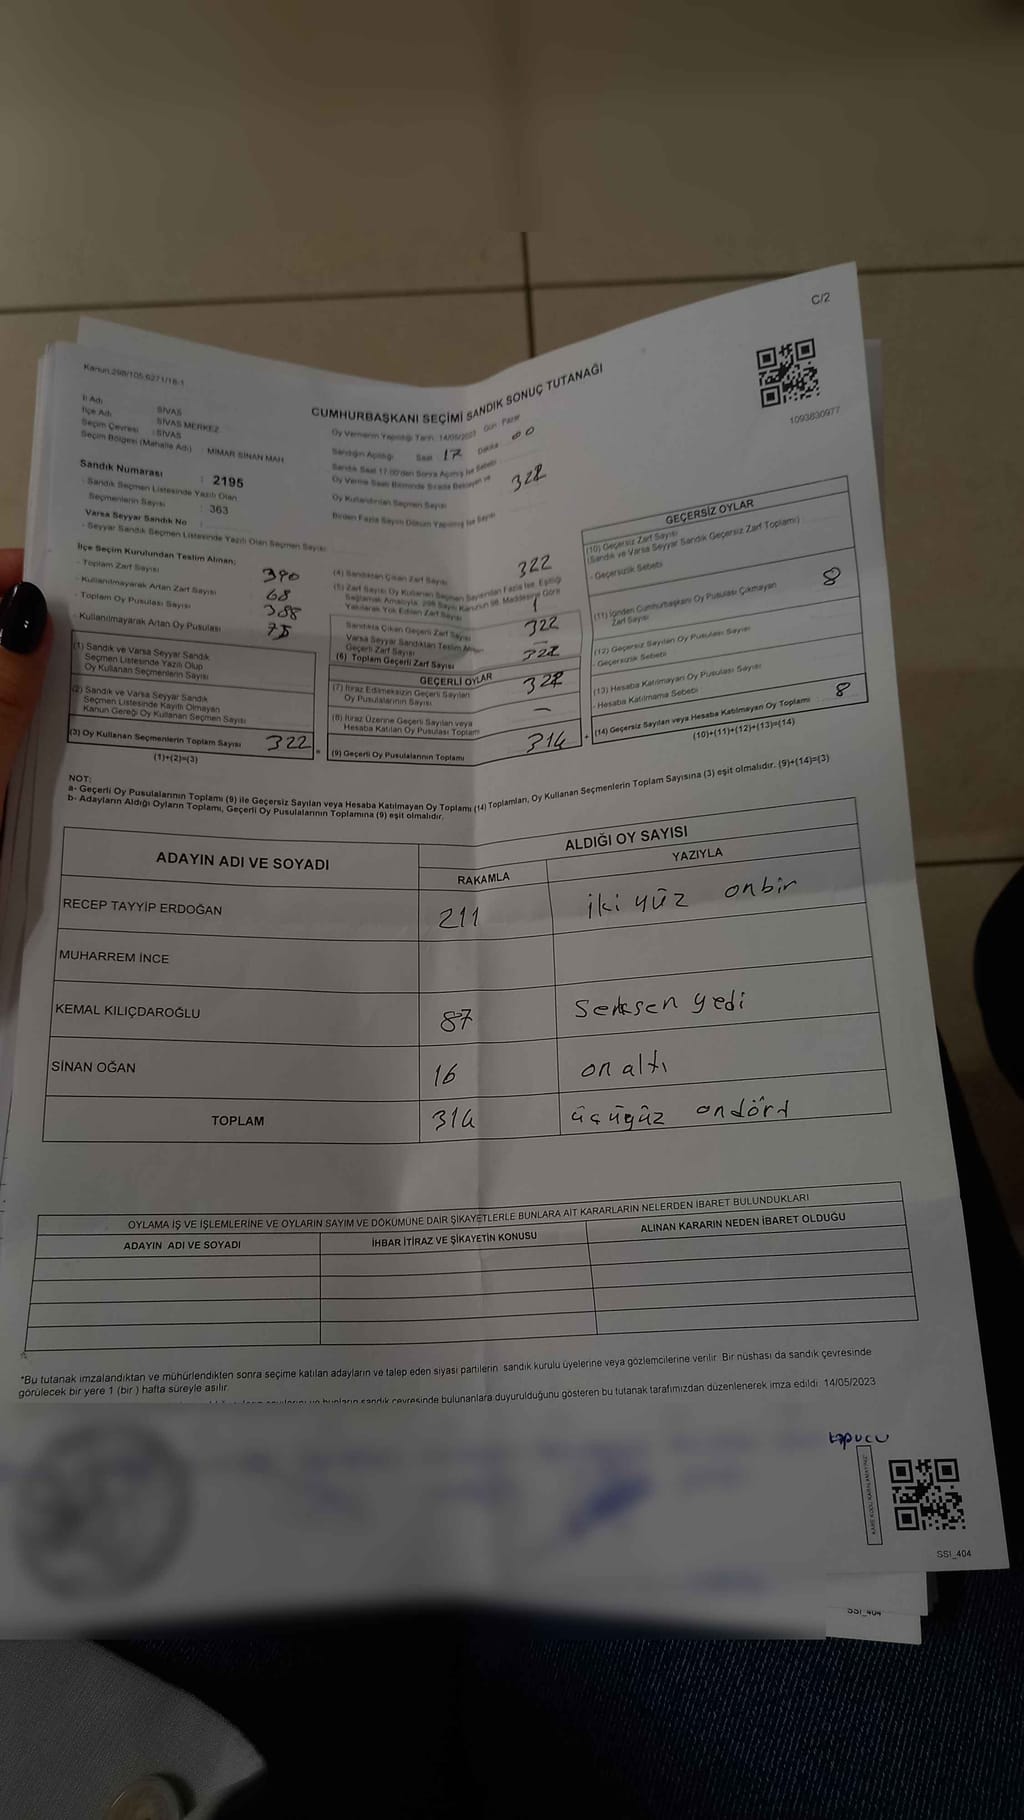 C/2
Kanun:298/105,6271/18-1
1093830977
CUMHURBAŞKANI SEÇİMİ SANDIK SONUÇ TUTANAĞI
İl Adı : SİVAS
İlçe Adı : SİVAS MERKEZ
Seçim Çevresi : SİVAS
Seçim Bölgesi (Mahalle Adı) : MİMAR SİNAN MAH.
Sandık Numarası : 2195
- Sandık Seçmen Listesinde Yazılı Olan
Seçmenlerin Sayısı : 363
Varsa Seyyar Sandık No :
- Seyyar Sandık Seçmen Listesinde Yazılı Olan Seçmen Sayısı
Oy Vermenin Yapıldığı Tarih: 14/05/2023 Gün: Pazar
Sandığın Açıldığı Saat : 17 Dakika : 00
Sandık Saat 17:00'den Sonra Açılmış İse Sebebi
Oy Verme Saati Bitiminde Sırada Bekleyen ve
Oy Kullandırılan Seçmen Sayısı 322
Birden Fazla Sayım Döküm Yapılmış İse Sayısı
İlçe Seçim Kurulundan Teslim Alınan;
- Toplam Zarf Sayısı 390
- Kullanılmayarak Artan Zarf Sayısı 68
- Toplam Oy Pusulası Sayısı 388
- Kullanılmayarak Artan Oy Pusulası
(1) Sandık ve Varsa Seyyar Sandık
Seçmen Listesinde Yazılı Olup
Oy Kullanan Seçmenlerin Sayısı
(2) Sandık ve Varsa Seyyar Sandık
Seçmen Listesinde Kayıtlı Olmayan
Kanun Gereği Oy Kullanan Seçmen Sayısı
(3) Oy Kullanan Seçmenlerin Toplam Sayısı 322 =
(1)+(2)=(3)
(4) Sandıktan Çıkan Zarf Sayısı 322
(5) Zarf Sayısı Oy Kullanan Seçmen Sayısından Fazla İse, Eşitliği
Sağlamak Amacıyla, 298 Sayılı Kanunun 98. Maddesine Göre
Yakılarak Yok Edilen Zarf Sayısı
Sandıkta Çıkan Geçerli Zarf Sayısı 322
Varsa Seyyar Sandıktan Teslim Alınan
Geçerli Zarf Sayısı –
(6) Toplam Geçerli Zarf Sayısı 322
GEÇERLİ OYLAR
(7) İtiraz Edilmeksizin Geçerli Sayılan
Oy Pusulasının Sayısı 322
(8) İtiraz Üzerine Geçerli Sayılan veya
Hesaba Katılan Oy Pusulası Toplam –
(9) Geçerli Oy Pusulalarının Toplamı 314 +
GEÇERSİZ OYLAR
(10) Geçersiz Zarf Sayısı
(Sandık ve Varsa Seyyar Sandık Geçersiz Zarf Toplamı)
- Geçersizlik Sebebi
(11) İçinden Cumhurbaşkanı Oy Pusulası Çıkmayan
Zarf Sayısı 8
(12) Geçersiz Sayılan Oy Pusulası Sayısı
- Geçersizlik Sebebi
(13) Hesaba Katılmayan Oy Pusulası Sayısı
- Hesaba Katılmama Sebebi
(14) Geçersiz Sayılan veya Hesaba Katılmayan Oy Toplamı 8
(10)+(11)+(12)+(13)=(14)
NOT:
a- Geçerli Oy Pusulalarının Toplamı (9) ile Geçersiz Sayılan veya Hesaba Katılmayan Oy Toplamı (14) Toplamları, Oy Kullanan Seçmenlerin Toplam Sayısına (3) eşit olmalıdır. (9)+(14)=(3)
b- Adayların Aldığı Oyların Toplamı, Geçerli Oy Pusulalarının Toplamına (9) eşit olmalıdır.
ADAYIN ADI VE SOYADI
ALDIĞI OY SAYISI
RAKAMLA YAZIYLA
RECEP TAYYİP ERDOĞAN 211 iki yüz onbir
MUHARREM İNCE
KEMAL KILIÇDAROĞLU 87 Seksen yedi
SİNAN OĞAN 16 on altı
TOPLAM 314 üçüyüz ondört
OYLAMA İŞ VE İŞLEMLERİNE VE OYLARIN SAYIM VE DÖKÜMÜNE DAİR ŞİKAYETLERLE BUNLARA AİT KARARLARIN NELERDEN İBARET BULUNDUKLARI
ADAYIN ADI VE SOYADI İHBAR İTİRAZ VE ŞİKAYETİN KONUSU ALINAN KARARIN NEDEN İBARET OLDUĞU
*Bu tutanak imzalandıktan ve mühürlendikten sonra seçime katılan adayların ve talep eden siyasi partilerin sandık kurulu üyelerine veya gözlemcilerine verilir. Bir nüshası da sandık çevresinde
görülecek bir yere 1 (bir) hafta süreyle asılır.
bunların sandık çevresinde bulunanlara duyurulduğunu gösteren bu tutanak tarafımızdan düzenlenerek imza edildi. 14/05/2023
SSI_404
SSI_404